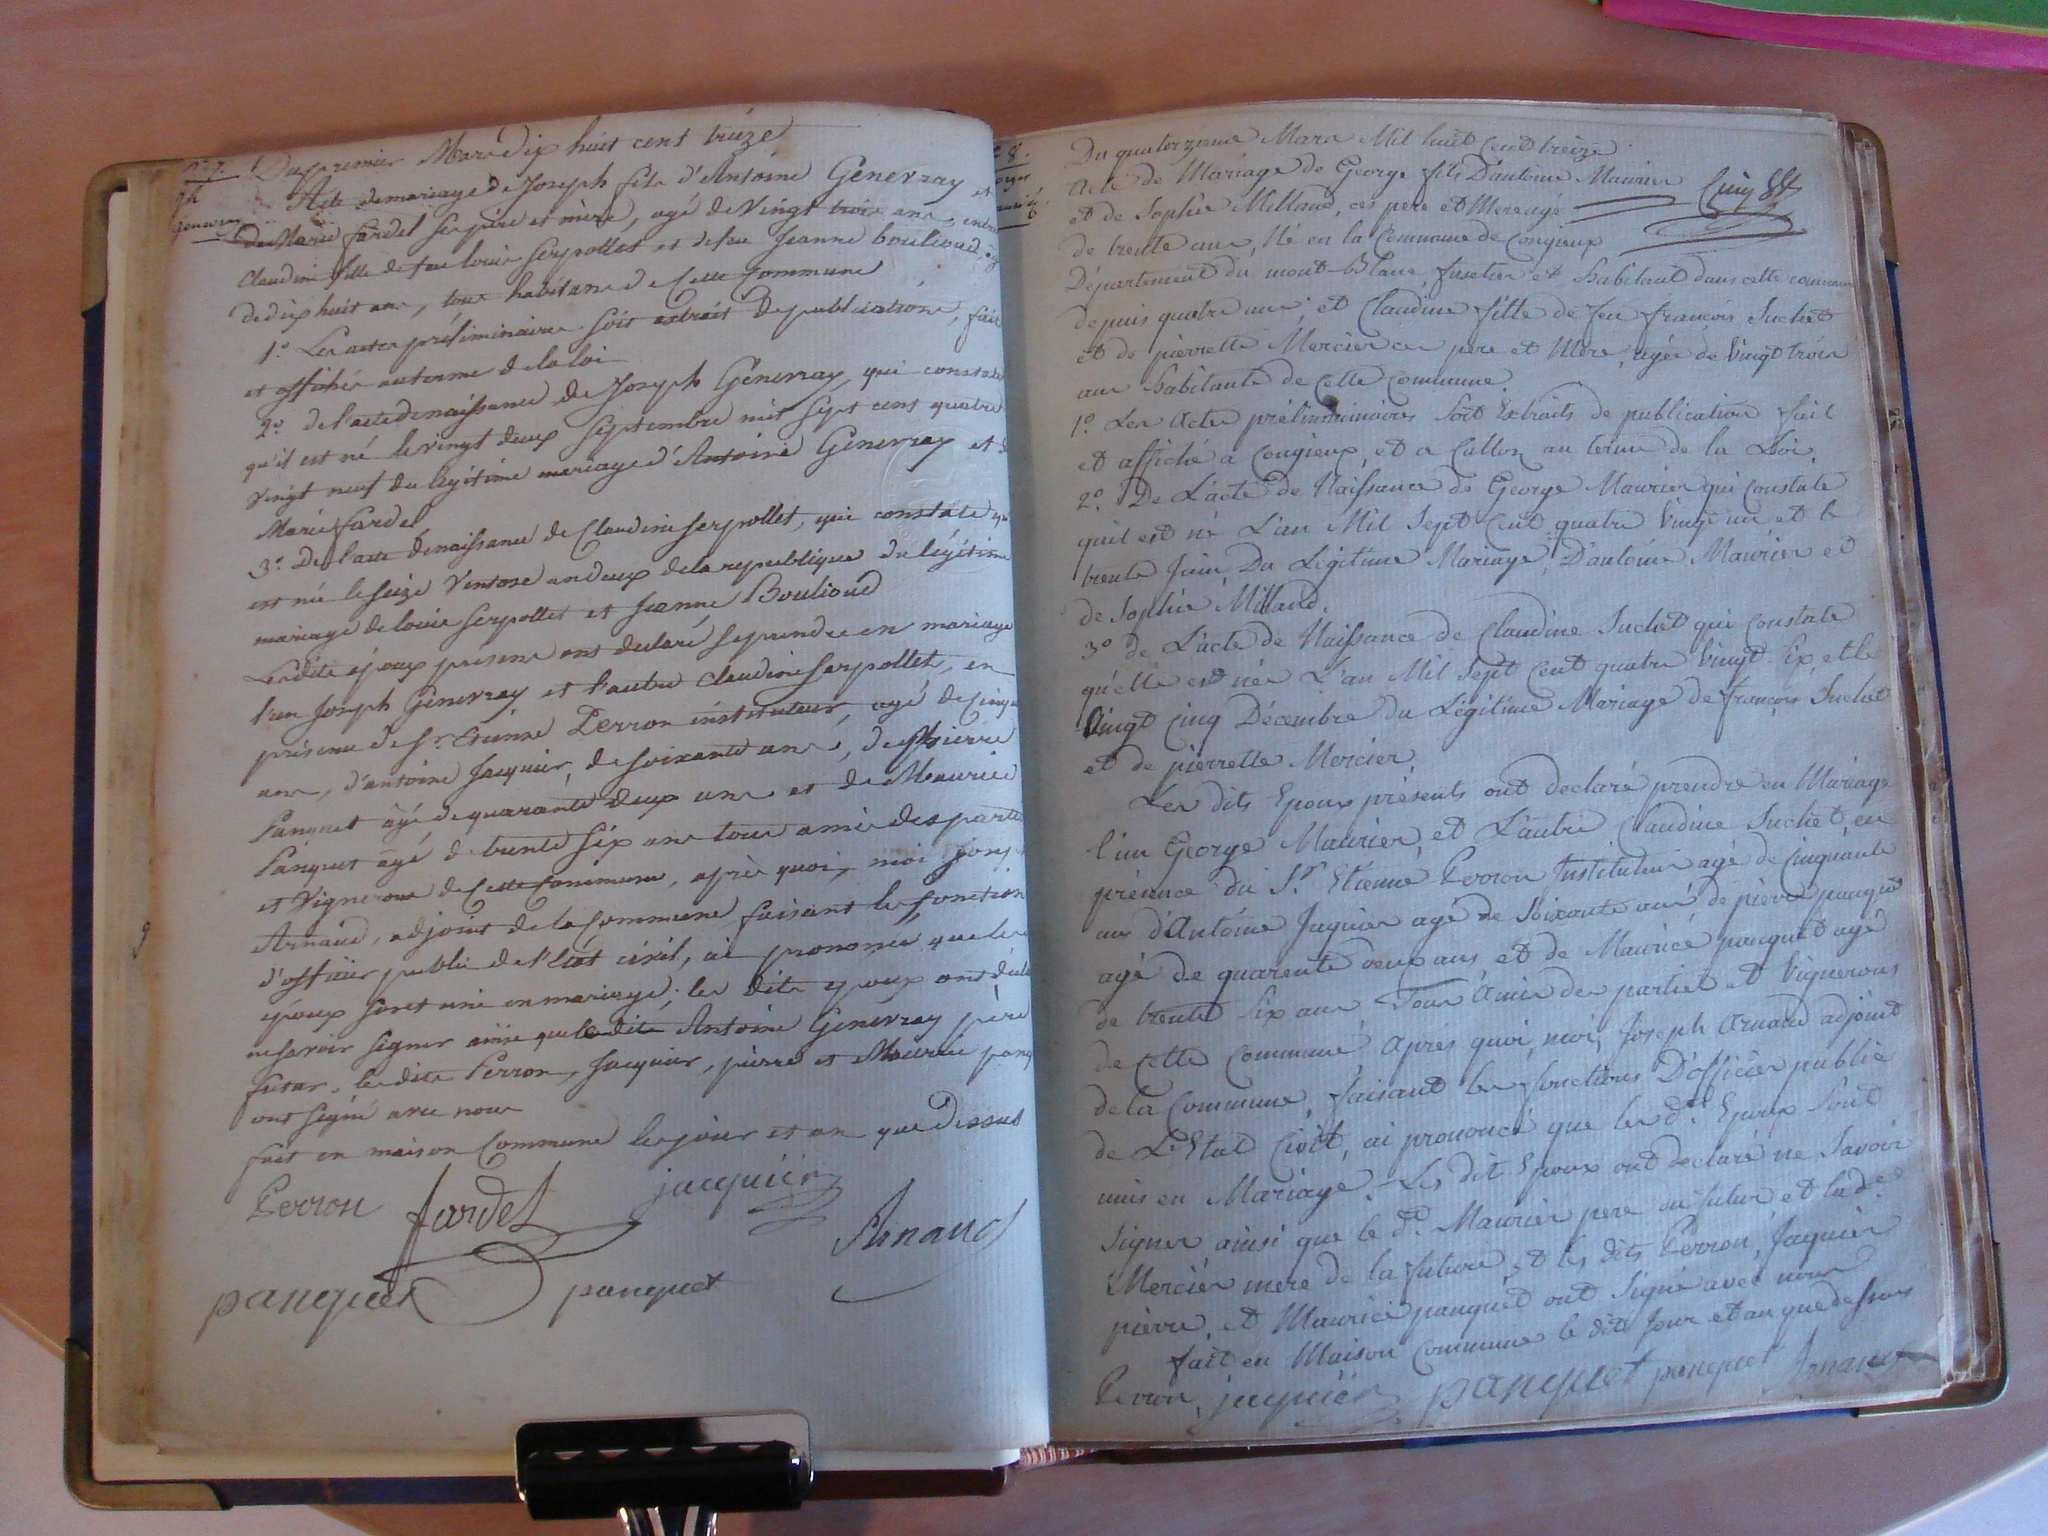 n° 7.
Du premier Mars dix huit cent treize
Acte de mariage de Joseph fils d'Antoine Genevray et
de Marie fardel ses père et mère, agé de Vingt trois ans, entre
Claudine fille de feu louis Serpollet et defeu Jeanne boulioud,
de dix huit ans, tous habitans de Cette Commune
1.° Les actes préliminaires soit extrait de publications, fait
et affichés au terme de la loi
2.° de l'acte de naissance de Joseph Genevray, qui constate
qu'il est né le vingt deux Septembre mil Sept cent quatre
vingt neuf du légitime mariage d'Antoine Genevray et de
Marie fardel
3.° De l'acte de naissance de Claudine Serpollet, qui constate
est née le Seize Ventose an deux de la republique du légitime
mariage de louis Serpollet et Jeanne Boulioud
Lesdits époux présens ont declaré se prendre en mariage
l'un Joseph Genevray et l'autre Claudine Serpollet, en
présence de Sr. Etienne Perron instituteur, agé de
ans, d'antoine Jacquier, de soixante ans, de Pierre
Panquet âgé de quarante deux ans et de Maurice
Panquet agé de trente six ans tous amis des parties
et Vignerons de Cette Commune, après quoi, moi
Arnaud, adjoint de la Commune faisant les fonctions
d'officier public de l'état civil, ai prononcé que les
époux sont unis en mariage; les dits époux ont
ne savoir signer ainsi que le dits Antoine Genevray père
futur, les dits Perron, Jacquier, pierre et Maurice
ont signé avec nous
fait en maison Commune les jour et an que dessus
Perron fardel jacquier
Arnaud
panquet panquet
8.
Du quatorzieme Mars Mil huit Cent treize
Acte de Mariage de George fils D'antoine Maurier
et de Sophie Milland, ces pere et Mere agé
de trente ans, Né en la Commune de Congieux
Département du mont-Blanc, et habitant dans cette commune
depuis quatre ans, et Claudine fille de feu françois Suchet
et de pierrette Mercier ces pere et Mere, agée de Vingt trois
ans habitante de Cette Commune.
1.° Les Actes préliminaires Soit Extraits de publication fait
et affiché a Congieux, et a Callon au terme de la Loi.
2.° De L'acte de Naissance de George Maurier qui Constate
quil est né L'an Mil Sept Cent quatre Vingt un et le
trente Juin, Du Légitime Mariage, D'antoine Maurier et
de Sophie Milland.
3.° de L'acte de Naissance de Claudine Suchet qui Constate
qu'elle est née L'an Mil Sept Cent quatre Vingt Six, et le
Vingt Cinq Décembre du Légitime Mariage de françois Suchet
et de pierrette Mercier.
Les dits Epoux présents ont declaré prendre en Mariage
l'un George Maurier, et L'autre Claudine Suchet, en
présence du Sr. Etienne Perron Instituteur agé de Cinquante
ans d'Antoine Jaquier agé de Soixante ans de pierre panquet
agé de quarente deux ans et de Maurice panquet agé
de trente Six ans, Tous Amis des parties et Vignerons
de Cette Commune Apres quoi, moi, Joseph Arnaud adjoint
de la Commune, faisant les fonctions D'officier public
de L'Etat Civil, ai prononcé que les d.ts Epoux Sont
unis en Mariage. Les dit Epoux ont declaré ne Savoir
signer ainsi que le d.t Maurier pere au futur et lad.e
Mercier mere de la future, et les dits Perron, Jaquier
pierre, et Maurice panquet ont Signé avec nous
fait en Maison Commune le dits Jour et an que dessus
Perron, jacquier panquet panquet Arnaud